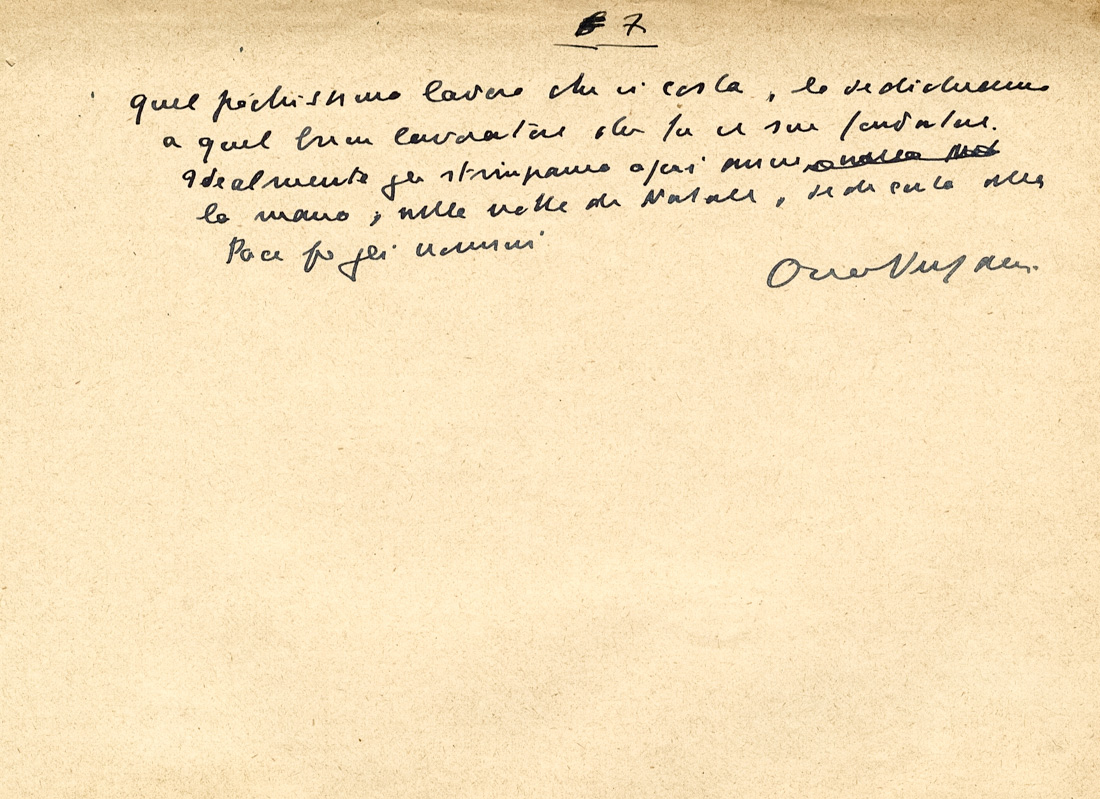 7
quel pochissimo lavoro che ci costa, lo dedichiamo
a quel buon lavoratore che fu il suo fondatore.
Idealmente gli stringiamo ogni anno
la mano, nella notte di Natale, dedicata alla
Pace fra gli uomini
Orio Vergani.